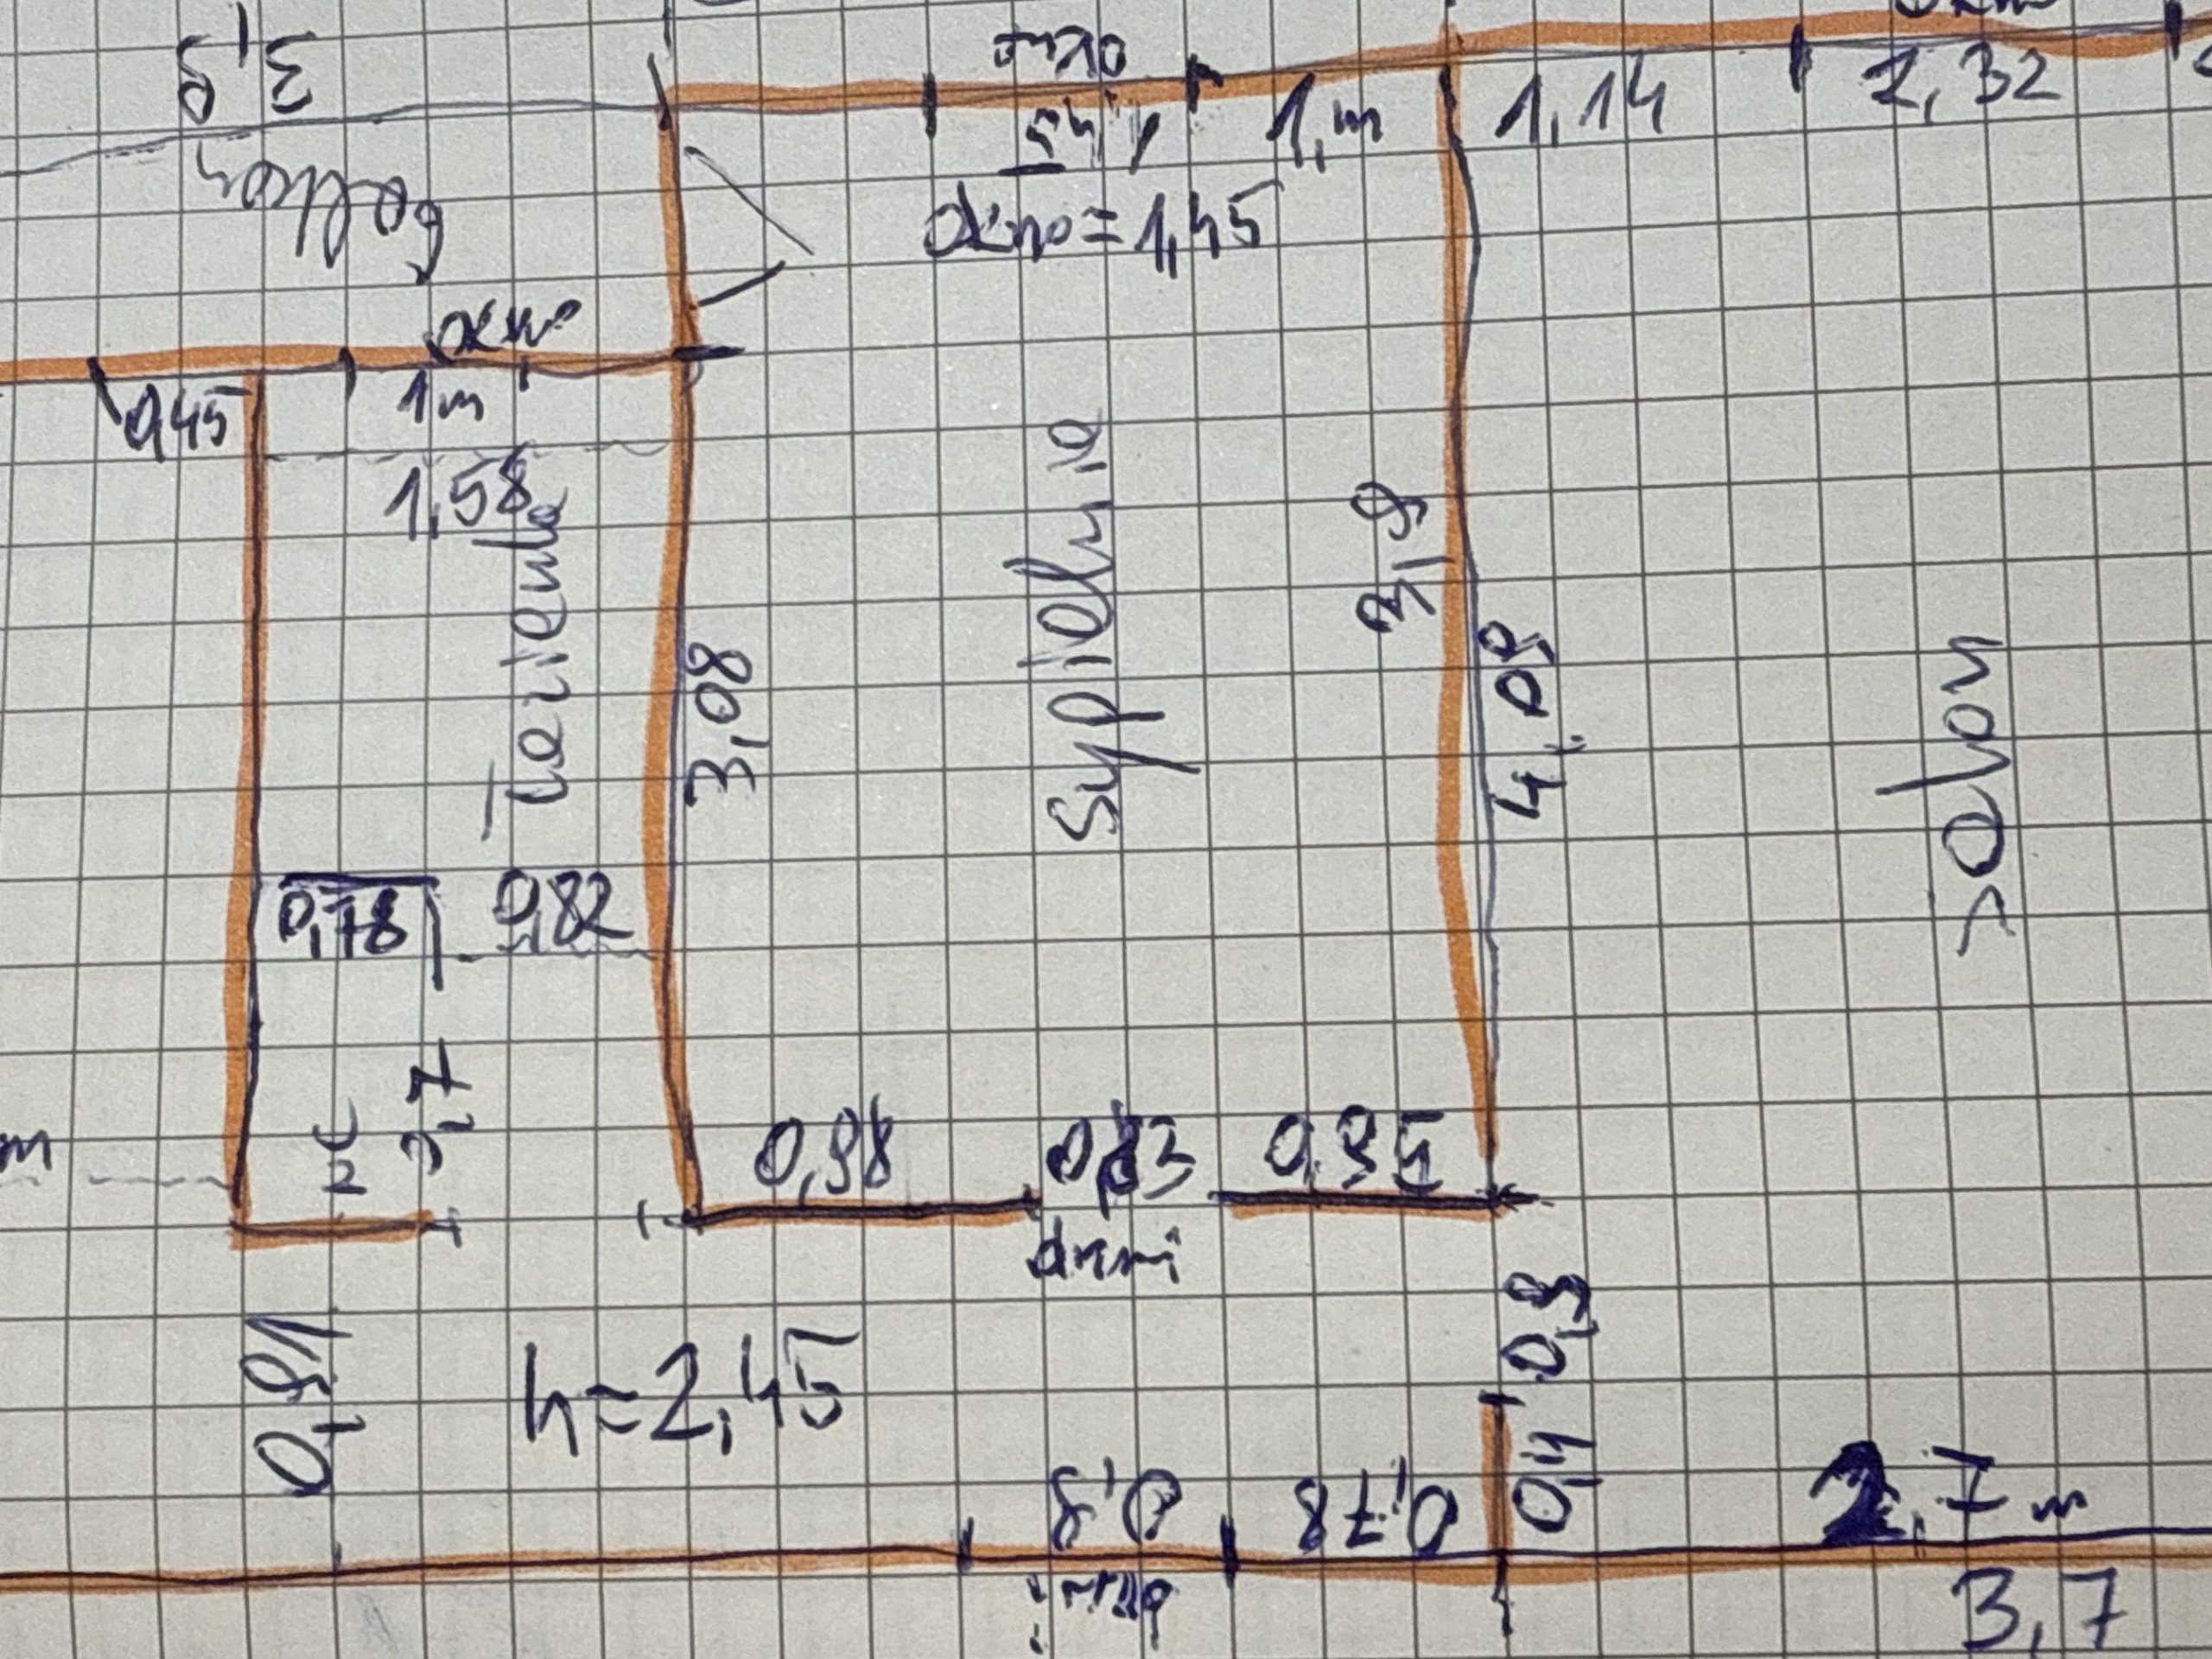 3,9
okno
1,45
1,m
1,14
2,32
balkon
okno=1,45
okno
0,45
1m
1,58
Łazienka
Sypielnia
3,9
3,08
4,09
salon
0,78
0,82
0,7
0,98
0,83
0,95
m
drzwi
0,91
h=2,45
0,9
0,4
0,9
0,78
2,7m
drzwi
3,7